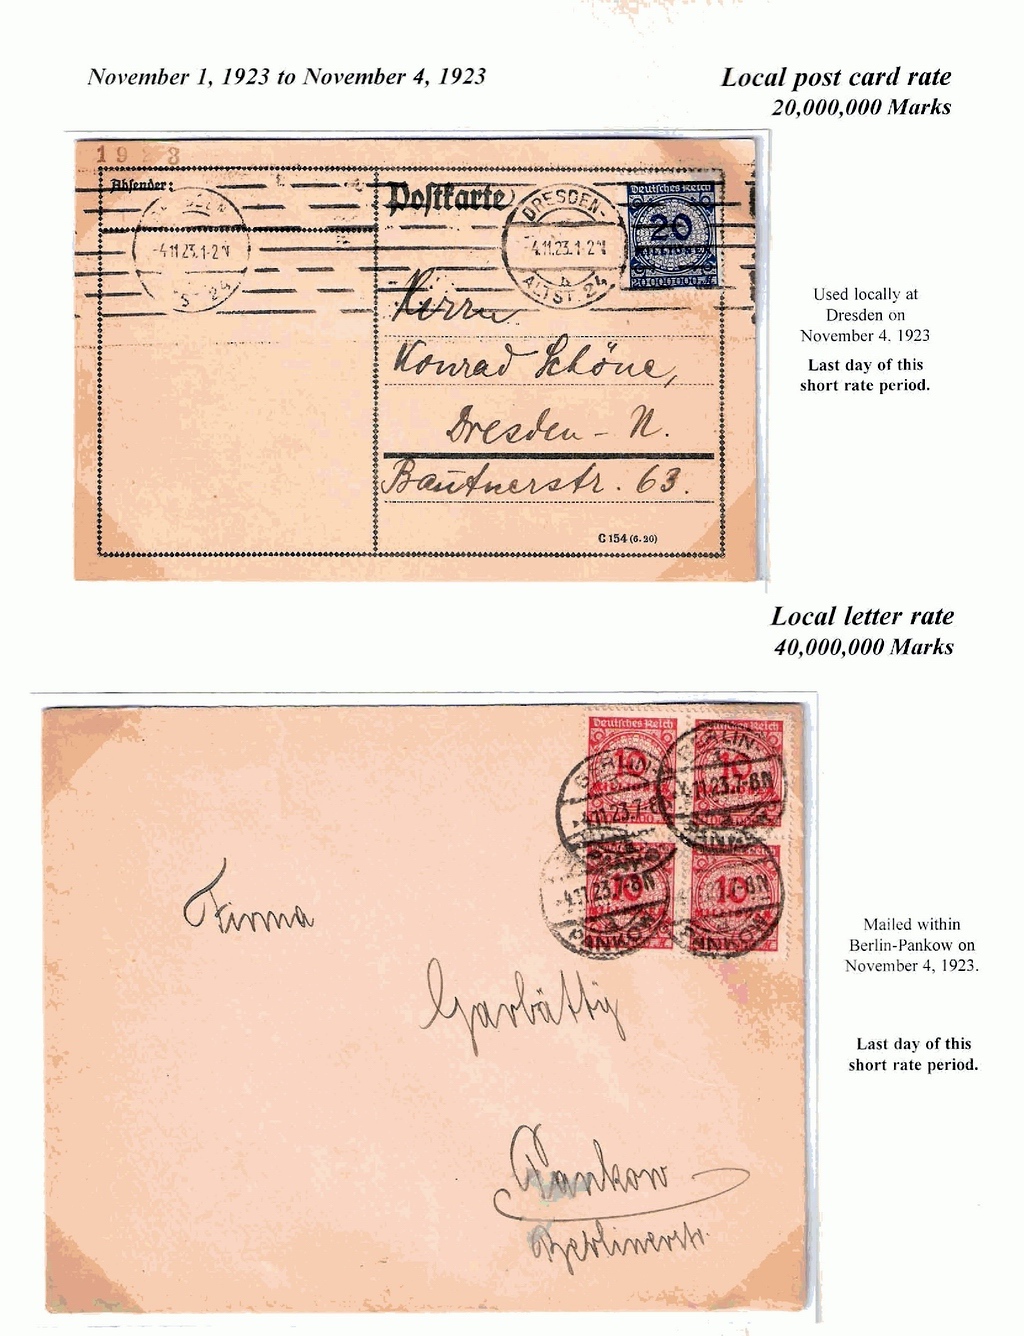 November 1, 1923 to November 4, 1923
Local post card rate
20,000,000 Marks
1923
Absender:
Postkarte
DRESDEN-
4.11.23.1-2 N
ALTST. 24
Deutsches Reich
20
MILLIONEN
Herrn
Konrad Schöne,
Dresden - N.
Bautnerstr. 63.
C 154 (6.20)
Used locally at
Dresden on
November 4. 1923
Last day of this
short rate period.
Local letter rate
40,000,000 Marks
Deutsches Reich
10
BERLIN-
4.11.23.7-8N
PANKOW
Firma
Garbátty
Pankow
Berlinerstr.
Mailed within
Berlin-Pankow on
November 4, 1923.
Last day of this
short rate period.